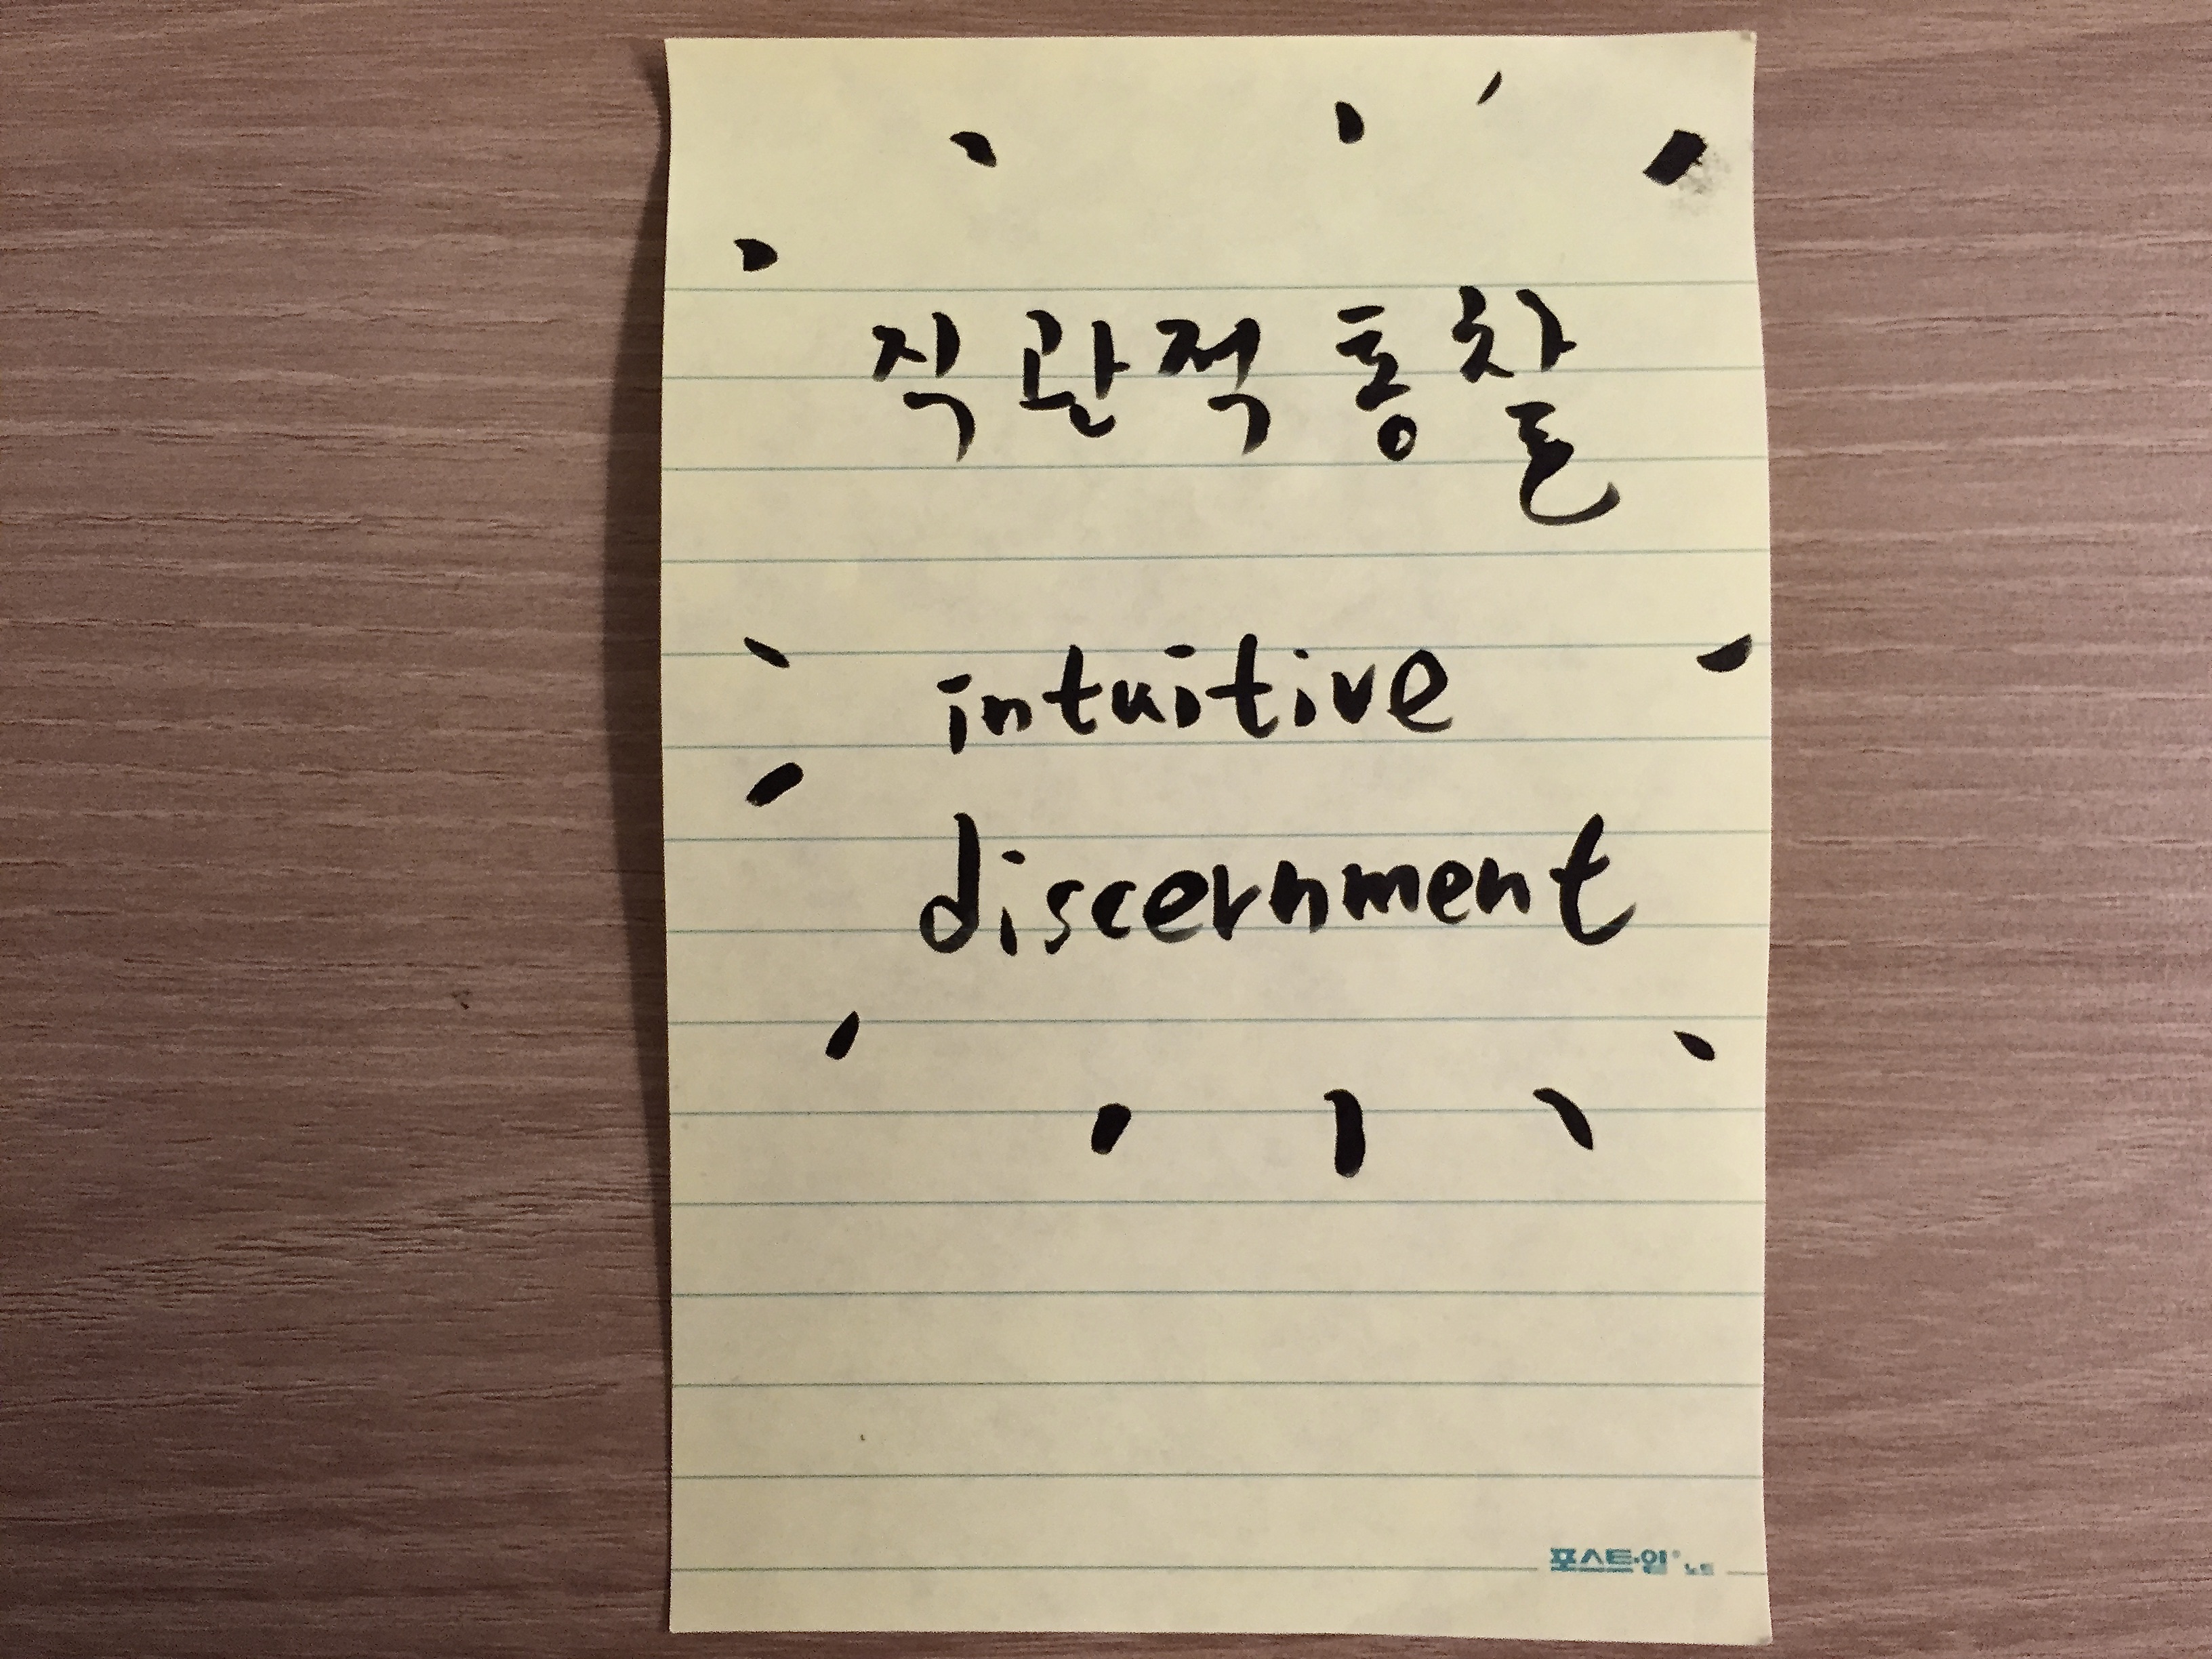 직관적 통찰
intuitive
discernment
포스트-잍® 노트